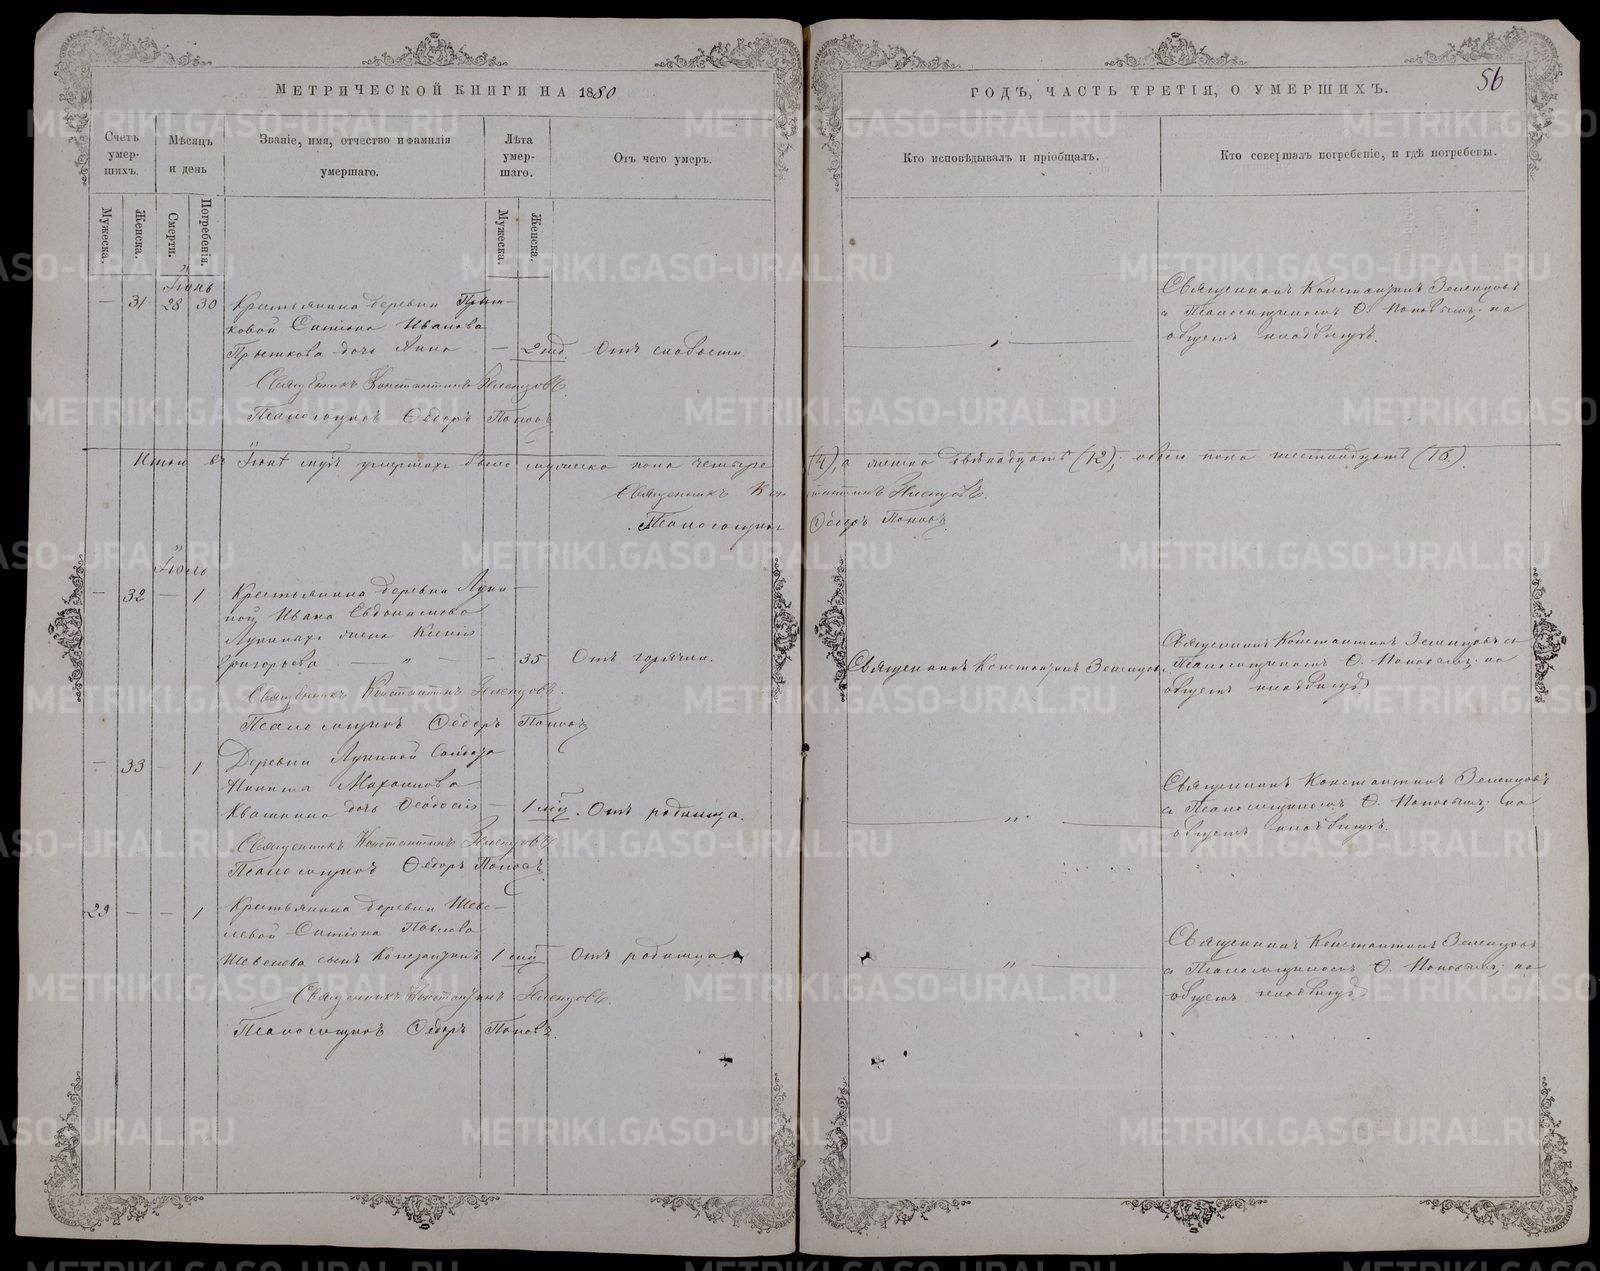 МЕТРИЧЕСКОЙ КНИГИ НА 1880
ГОДЪ, ЧАСТЬ ТРЕТІЯ, О УМЕРШИХЪ.
56
Счетъ умер-шихъ.
Мѣсяцъ и день
Званіе, имя, отчество и фамилія умершаго.
Лѣта умер-шаго.
Отъ чего умеръ.
Кто исповѣдывалъ и пріобщалъ.
Кто совершалъ погребеніе, и гдѣ погребены.
Мужеска.
Женска.
Смерти.
Погребенія.
Мужеска.
Женска.
Іюнь
— 31 28 30 Крестьянина деревни
Симіона Иванова
дочь Анна — 2 нед. Отъ слабости.
Священникъ Константинъ Зеленцовъ
съ Псаломщикомъ Ѳ. Поповымъ; на
общемъ кладбищѣ.
Священникъ Константинъ Зеленцовъ
Псаломщикъ Ѳеодоръ Поповъ
Итого въ Іюнѣ мцѣ умершихъ было мужеска пола четыре (4), а женска двѣнадцать (12); обоего пола шестнадцать (16).
Священникъ Константинъ Зеленцовъ.
Псаломщикъ Ѳеодоръ Поповъ.
Іюль
— 32 — 1 Крестьянина деревни Луни-
ной Ивана Евдокимова
Лунина жена Ксенія
Григорьева — „ — — 35 Отъ горячки.
Священникъ Константинъ Зеленцовъ
Священникъ Константинъ Зеленцовъ съ
Псаломщикомъ Ѳ. Поповымъ; на
общемъ кладбищѣ
Священникъ Константинъ Зеленцовъ.
Псаломщикъ Ѳеодоръ Поповъ
— 33 — 1 Деревни Луниной Солдата
Никиты
Квашнина дочь Ѳеодосія — 1 мцъ. Отъ родимца.
Священникъ Константинъ Зеленцовъ
съ Псаломщикомъ Ѳ. Поповымъ; на
общемъ кладбищѣ.
Священникъ Константинъ Зеленцовъ
Псаломщикъ Ѳеодоръ Поповъ
29 — — 1 Крестьянина деревни Шеве-
левой Симіона Павлова
Шевелева сынъ Константинъ 1 мцъ Отъ родимца
Священникъ Константинъ Зеленцовъ
съ Псаломщикомъ Ѳ. Поповымъ; на
общемъ кладбищѣ
Священникъ Константинъ Зеленцовъ.
Псаломщикъ Ѳеодоръ Поповъ.
METRIKI.GASO-URAL.RU